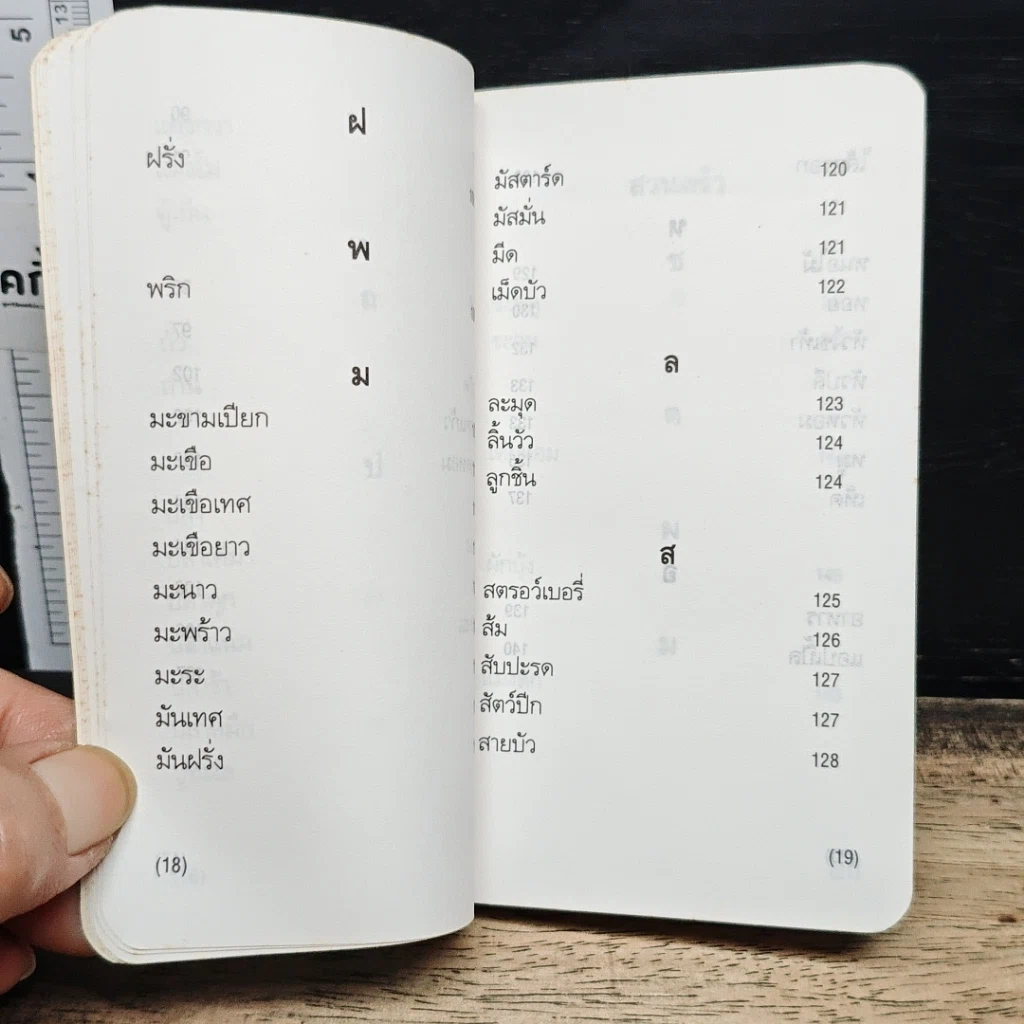 ฝ
ฝรั่ง
พ
พริก
ม
มะขามเปียก
มะเขือ
มะเขือเทศ
มะเขือยาว
มะนาว
มะพร้าว
มะระ
มันเทศ
มันฝรั่ง
(18)
มัสตาร์ด 120
มัสมั่น 121
มีด 121
เม็ดบัว 122
ล
ละมุด 123
ลิ้นวัว 124
ลูกชิ้น 124
ส
สตรอว์เบอรี่ 125
ส้ม 126
สับปะรด 127
สัตว์ปีก 127
สายบัว 128
(19)
5
13